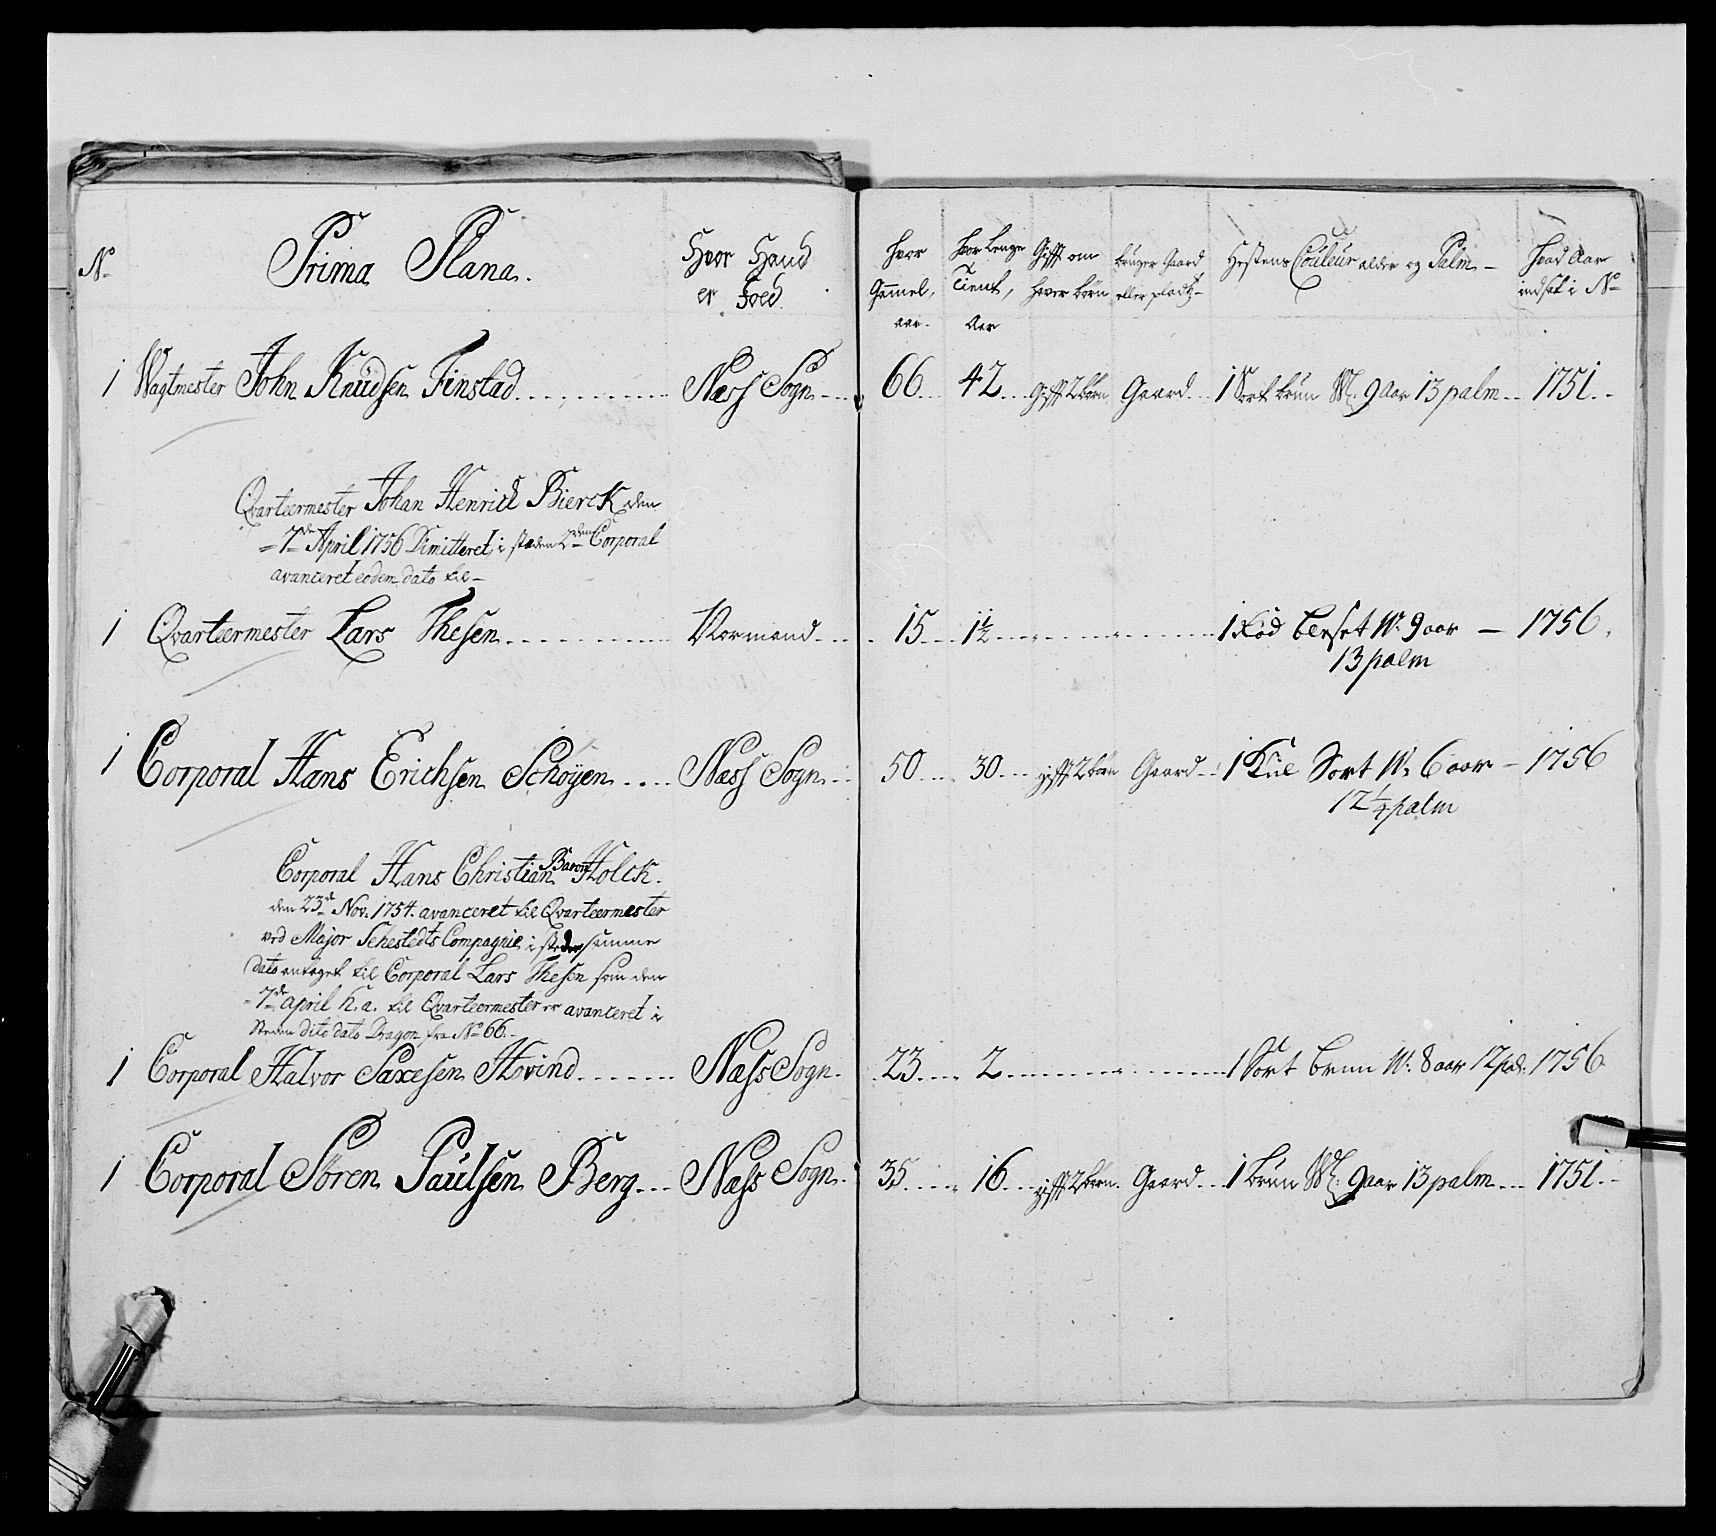 No
Prima Plana.
Hvor Hand
er Föed
hvor
Gammel,
aar.
hvor lenge
Tient,
Aar
Gift om
haver börn
bruger Gaard
eller pladtz
Hestens Couleur alder og Palm
hvad Aar
indsat i No
1 Wagtmester John Knüdsen Finstad Næss Sogn 66 42 Gift 2 börn Gaard 1 Sort brün W. 9 aar 13 palm 1751.
Qvarteermester Johan Henrich Bierck den
7de April 1756 Dimitteret, i steden 2den Corporal
avanceret eodem dato til
1 Qvarteermester Lars Thesen Normand 15 1½ 1 Röd blesset W. 9 aar 1756.
13 palm
1 Corporal Hans Erichsen Schöyen Næss Sogn 50 30 gift 2 börn Gaard 1 Kül Sort W. 6 aar 1756
12¼ palm
Corporal Hans Christian Baron Holck.
den 23de Nov. 1754. avanceret til Qvarteermester
ved Major Sehestedts Compagnie i steden samme
dato antaget til Corporal Lars Thesen som den
7de april h. a. til Qvarteermester er avanceret i
Steden dito dato Dragon fra No 66.
1 Corporal Halvor Saxesen Hovind Næss Sogn. 23 2 1 Sort brun W. 8 aar 12 pal. 1756
1 Corporal Sören Paülsen Berg Næss Sogn. 35 16 gift 2 börn Gaard 1 brün W. 9 aar 13 palm 1751.